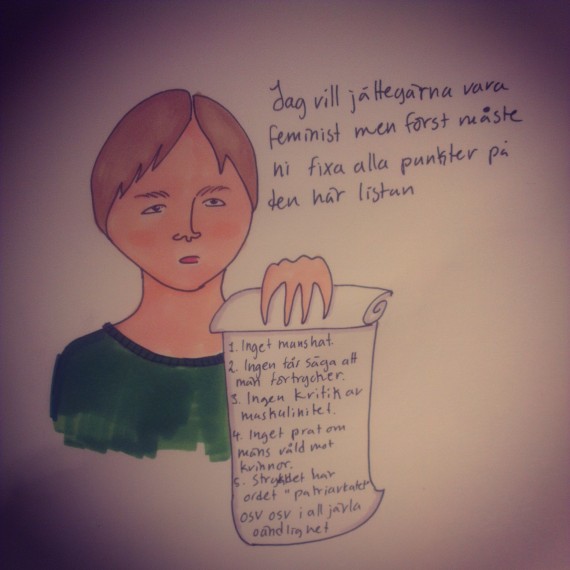 Jag vill jättegärna vara
feminist men först måste
ni fixa alla punkter på
den här listan
1. Inget manshat.
2. Ingen får säga att
män förtrycker.
3. Ingen kritik av
maskulinitet.
4. Inget prat om
mäns våld mot
kvinnor.
5. Stryk det här
ordet "patriarkatet"
osv osv i all jävla
oändlighet